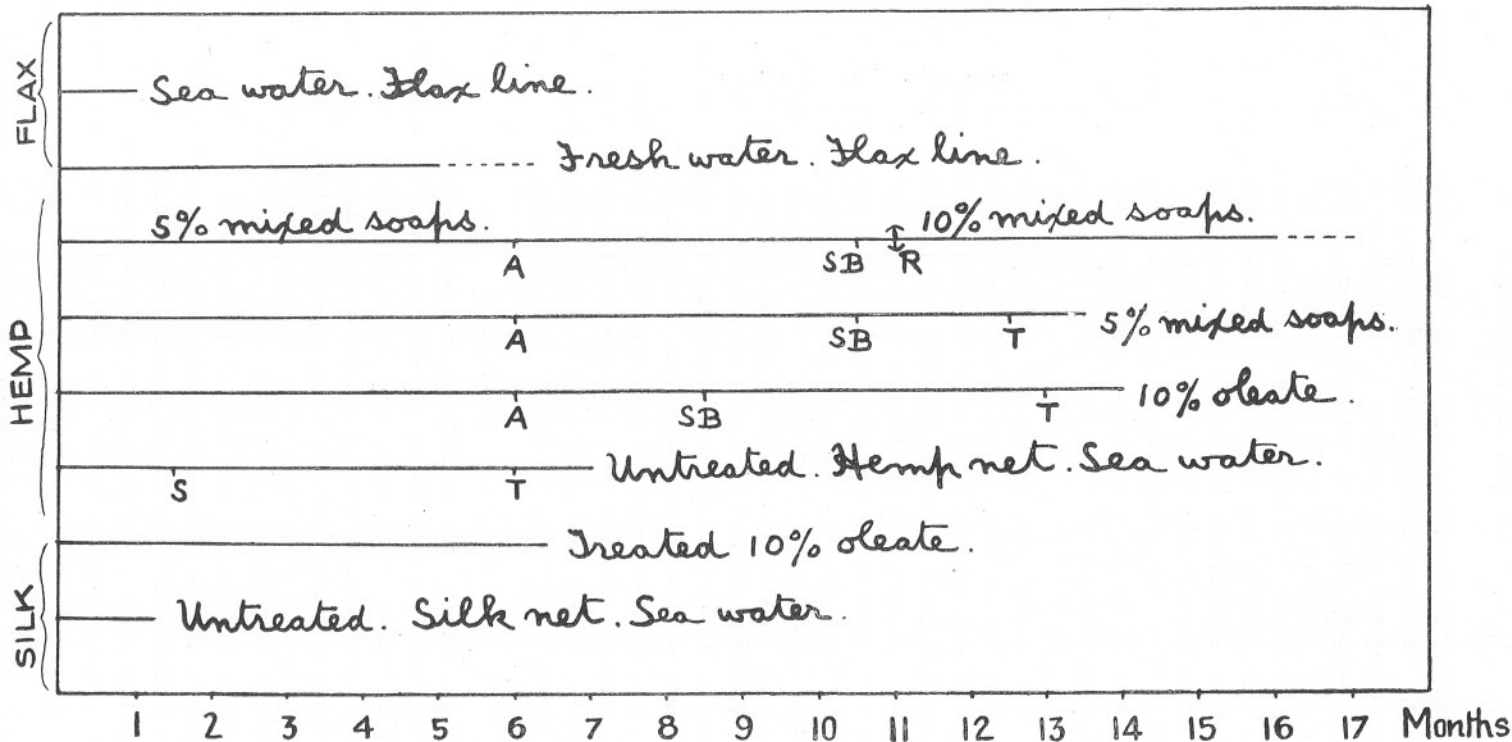 FLAX
Sea water. Flax line.
Fresh water. Flax line.
HEMP
5% mixed soaps. 10% mixed soaps.
A SB R
5% mixed soaps.
A SB T
10% oleate.
A SB T
Untreated. Hemp net. Sea water.
S T
SILK
Treated 10% oleate.
Untreated. Silk net. Sea water.
1 2 3 4 5 6 7 8 9 10 11 12 13 14 15 16 17 Months